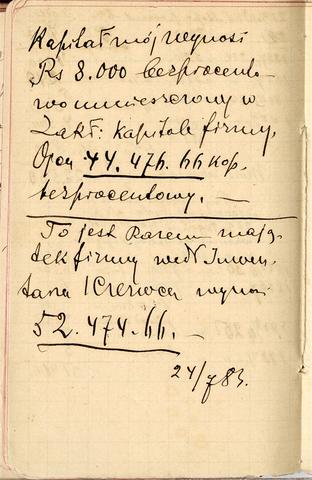 Kapitał mój wynosi
Rs 8.000 bezprocento-
wo umieszczony w
Zakł: kapitale firmy,
44.476.66 kop.
bezprocentowy. —
To jest Razem mają-
tek firmy wedł Inwen-
tarza 1 Czerwca wynosi
52.474.66. —
24/7 83.